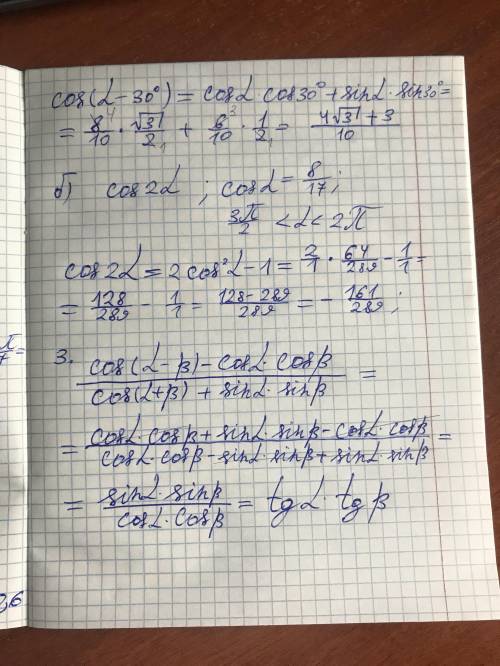 cos(α-30°) = cosα cos30° + sinα · sin30° =
= 8/10 · √3/2 + 6/10 · 1/2 = (4√3+3)/10
б) cos2α ; cosα = 8/17;
3π/2 < α < 2π
cos2α = 2cos²α-1 = 2/1 · 64/289 - 1/1 =
= 128/289 - 1/1 = (128-289)/289 = - 161/289;
π/7 =
3. (cos(α-β) - cosα · cosβ)/(cos(α+β) + sinα · sinβ) =
= (cosα · cosβ + sinα · sinβ - cosα · cosβ)/(cosα · cosβ - sinα · sinβ + sinα · sinβ) =
= (sinα · sinβ)/(cosα · cosβ) = tgα · tgβ